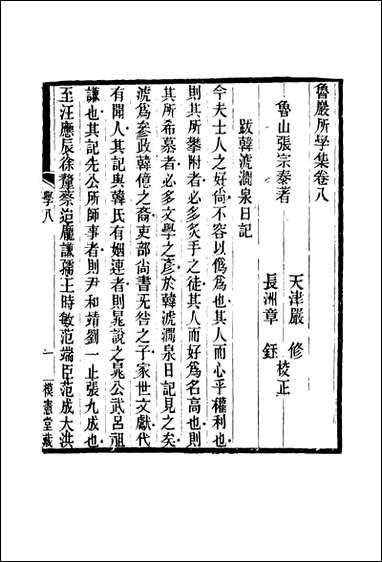 魯巖所學集卷八
魯山張宗泰著
天津嚴　修
長洲章　鈺
校正
跋韓淲澗泉日記
今夫士人之好尚不容以僞爲也其人而心乎權利也
則其所攀附者必多炙手之徒其人而好爲名高也則
其所希慕者必多文學之彥於韓淲澗泉日記見之矣
淲爲參政韓億之裔吏部尚書旡咎之子家世文獻代
有聞人其記與韓氏有姻連者則晁說之晁公武呂祖
謙也其記先公所師事者則尹和靖劉一止張九成也
至汪應辰徐釐蔡迨龐謙孺王時敏范端臣范成大洪
學八
一
模憲堂藏